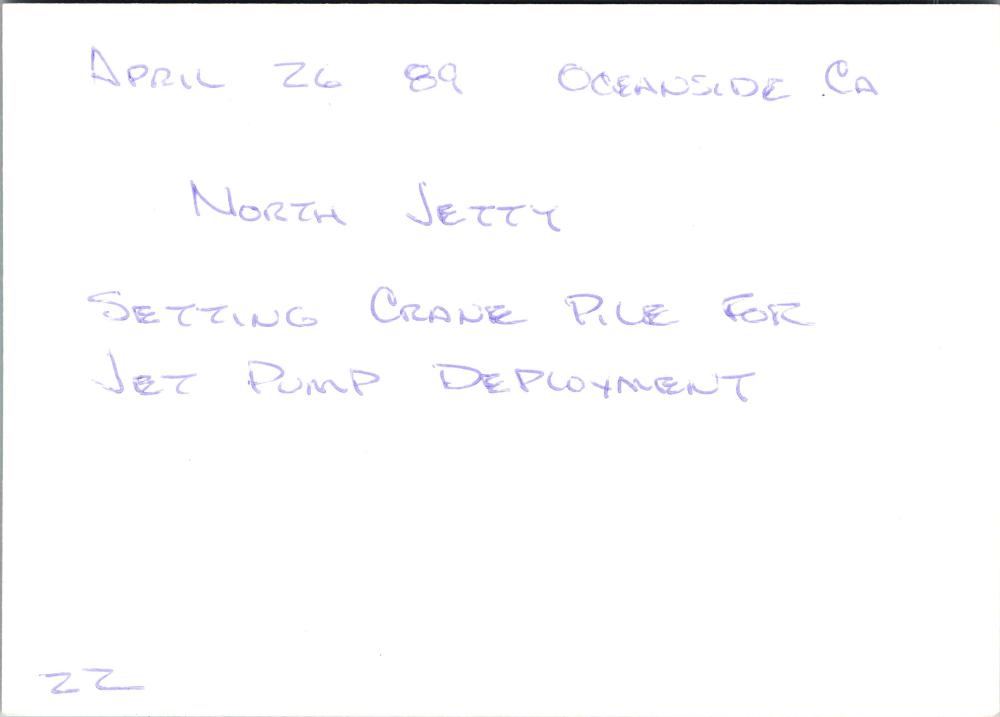 APRIL 26 89 OCEANSIDE CA
NORTH JETTY
SETTING CRANE PILE FOR
JET PUMP DEPLOYMENT
22